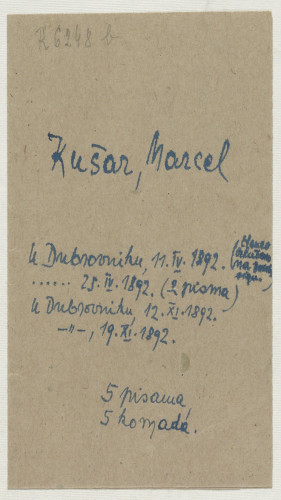 K 6248 b
Kušar, Marcel
U Dubrovniku, 11. IV. 1892.
...... 25. IV. 1892. (2 pisma)
U Dubrovniku, 12. XI. 1892.
—〃—, 19. XI. 1892.
5 pisama,
5 komada.